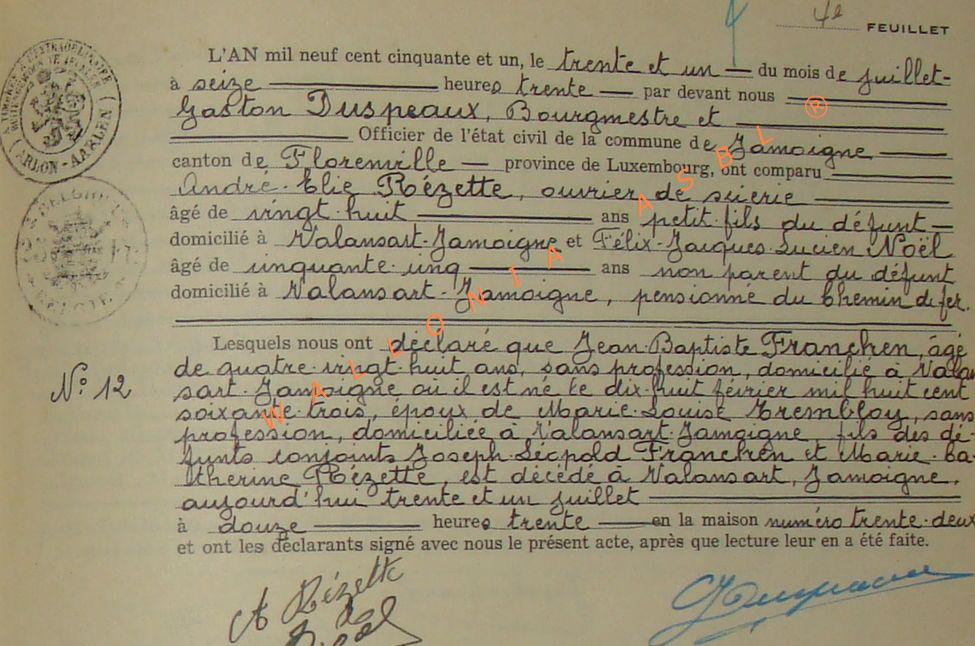 4e FEUILLET
L'AN mil neuf cent cinquante et un, le trente et un — du mois de juillet-
à seize heures trente — par devant nous
Gaston Duspeaux, Bourgmestre et
Officier de l'état civil de la commune de Jamoigne
canton de Florenville — province de Luxembourg, ont comparu
André-Elie Rézette, ouvrier de scierie
âgé de vingt-huit ans petit fils du défunt —
domicilié à Valansart-Jamoigne et Félix-Jacques Lucien Noël
âgé de cinquante-cinq ans non parent du défunt
domicilié à Valansart-Jamoigne, pensionné du chemin de fer.
Lesquels nous ont déclaré que Jean-Baptiste Franchen, âgé
de quatre-vingt-huit ans, sans profession, domicilié à Valan
N° 12 sart-Jamoigne où il est né le dix-huit février mil huit cent
soixante-trois, époux de Marie-Louise Trembloy, sans
profession, domiciliée à Valansart-Jamoigne, fils des dé-
funts conjoints Joseph-Léopold Franchen et Marie-Ca-
therine Rézette, est décédé à Valansart, Jamoigne,
aujourd'hui trente et un juillet
à douze heures trente — en la maison numéro trente-deux
et ont les déclarants signé avec nous le présent acte, après que lecture leur en a été faite.
A Rézette
ARLON-ARLEN
WALLONIA ASBL ®